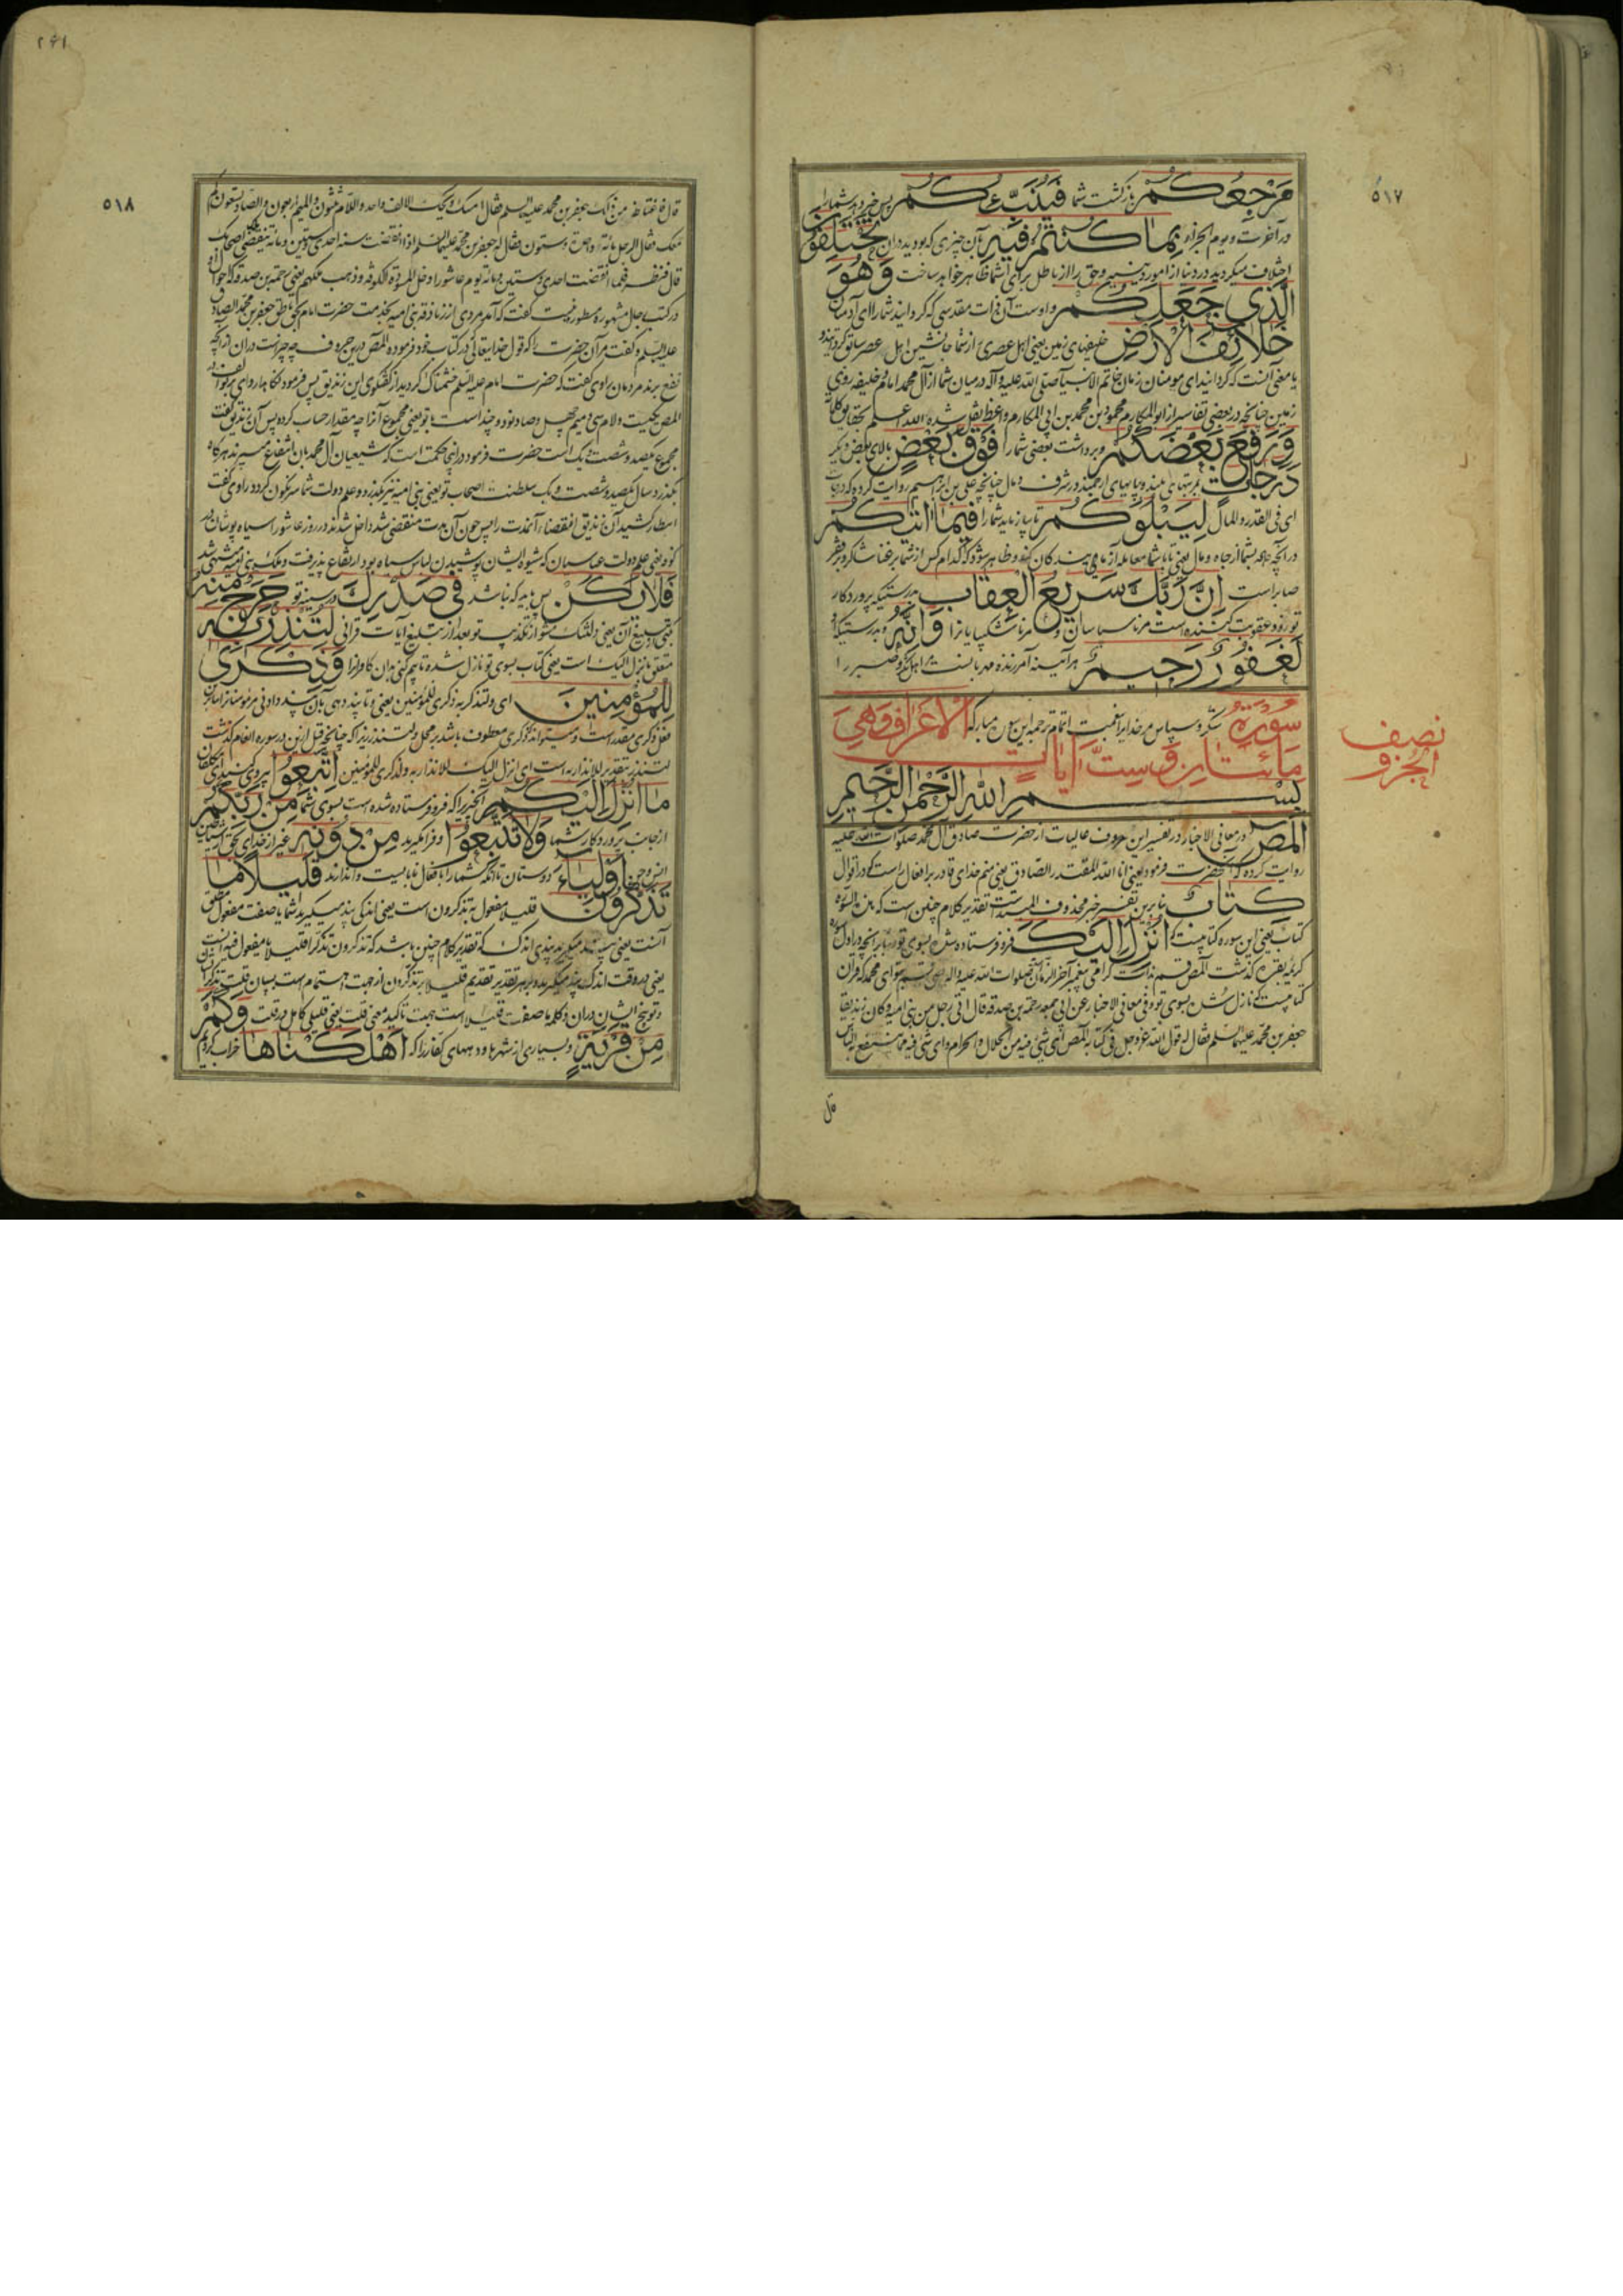 ٥١٧
مَرْجِعُكُمْ بازگشت شما فَيُنَبِّئُكُمْ پس خبر دهد شما را
در آخرت و یوم الجزاء بِمَا كُنْتُمْ فِيهِ بآن چیزی که بودید در ان تَخْتَلِفُونَ
اختلاف میکردید در دنیا از امور دینیه و حق را از باطل برای شما ظاهر خواهد ساخت وَهُوَ
الَّذِي جَعَلَكُمْ و اوست آن ذات مقدسی که گردانید شما را ای آدمیان
خَلَائِفَ الْأَرْضِ خلیفهای زمین یعنی اهل عصری از شما جانشین اهل عصر سابق گردانید و
یا معنی آنست که گردانید ای مومنان زمان خاتم الانبیا صلی الله علیه و آله در میان شما از آل محمد امام و خلیفه روی
زمین چنانچه در بعضی تفاسیر از ابو المکارم محمود بن محمد بن ابی المکارم واعظ نقل شده الله اعلم
وَرَفَعَ بَعْضَكُمْ و برداشت بعضی شما را فَوْقَ بَعْضٍ بالای بعض دیگر
دَرَجَاتٍ بمرتبهای بلند و پایهای ارجمند در شرف و مال چنانچه علی بن ابراهیم روایت کرده که درجات
ای فی القدر و المال لِيَبْلُوَكُمْ تا بیازماید شما را فِيمَا آتَاكُمْ
در آنچه داده بشما از جاه و مال یعنی تا با شما معامله آزمایندگان کند و ظاهر شود که کدام کس از شما بر غنا شاکر و بر فقر
صابر است إِنَّ رَبَّكَ سَرِيعُ الْعِقَابِ بدرستیکه پروردگار
تو زود عقوبت کننده است مر ناسپاسان و مر ناشکیبایانرا وَإِنَّهُ و بدرستیکه او
لَغَفُورٌ رَحِيمٌ هر آینه آمرزنده مهربانست اهل شکر و صبر را
سورة شکر و سپاس مر خدایرا اتمام ترجمه این سوره مبارکه الاعراف وهي
مائتان وست آيات
نصف
الجزو
بِسْمِ اللهِ الرَّحْمٰنِ الرَّحِيمِ
المص در معانی الاخبار در تفسیر این حروف عالیات از حضرت صادق آل محمد صلوات الله علیه
روایت کرده که آنحضرت فرمود یعنی انا الله المقتدر الصادق یعنی منم خدای قادر بر افعال راست گو در اقوال
كِتَابٌ بنابرین تفسیر خبر محذوف المبتداست تقدیر کلام چنین است که هذه السورة
کتاب یعنی این سوره کتابیست أُنْزِلَ إِلَيْكَ که فرو فرستاده شده بسوی تو و بنابر آنچه در اول
کریمه بقره گذشت المص قسم است گرامی پیغمبر آخر الزمان صلوات الله علیه و آله یعنی قسم بتو ای محمد که قرآن
کتابیست که نازل شده بسوی تو و فی معانی الاخبار عن ابی جمعه رحمة بن صدقه قال اتی رجل من بنی امیه و کان زندیقا
جعفر بن محمد علیهما السلم فقال له قول الله عز و جل فی کتابه المص ای شیء فیه من الحلال و الحرام و ای شیء فیه مما ینتفع به الناس
قال
٢٦١
٥١٨
قال فاغتاظ من ذلک جعفر بن محمد علیه السلم فقال امسک ویحک الالف واحد و اللام ثلثون و المیم اربعون و الصاد تسعون کم
معک فقال الرجل مائة واحدی و ستون فقال له جعفر بن محمد علیهما السلم اذا انقضت سنه احدی و ستین و مائة ینقضی ملک اصحابک
قال فنظر فلما انقضت احدی و ستین و مائه یوم عاشورا دخل المسودة الکوفة و ذهب ملکهم یعنی رحمة بن صدقه که احوال او
در کتب رجال مشهوره مسطور نیست گفت که آمد مردی از زنادقه بنی امیه بخدمت حضرت امام بحق ناطق جعفر بن محمد الصادق
علیه السلم و گفت مر آن حضرت را که قول خدایتعالی در کتاب خود فرموده المص درین حروف چه چیز است در ان از آنچه
نفع برند مردمان راوی گفت که حضرت امام علیه السلم خشمناک گردید از گفتگوی این زندیق پس فرمود نگاهدار وای بر تو الف در
المص یکیست و لام سی و میم چهل و صاد نود و چند است با تو یعنی مجموع آنرا چه مقدار حساب کرده پس آن زندیق گفت
مجموع یکصد و شصت و یک است حضرت فرمود
بگذرد سال یکصد و شصت و یک سلطنت اصحاب تو یعنی بنی امیه نیز بگذرد و علم دولت شما سرنگون گردد راوی گفت
انتظار کشید آن زندیق انقضاء آنمدت را پس چون آن مدت منقضی شد داخل شدند در روز عاشورا سیاه پوشان در
کوفه یعنی علم دولت عباسیان که شیوه ایشان پوشیدن لباس سیاه بود ارتفاع پذیرفت و ملک بنی امیه منتهی شد
فَلَا يَكُنْ پس باید که نباشد فِي صَدْرِكَ در سینه تو حَرَجٌ مِنْهُ
تنگی از تبلیغ آن یعنی دلتنگ مشو از تکذیب تو بعد از تبلیغ آیات قرآنی لِتُنْذِرَ بِهِ
متعلق بانزل الیک است یعنی کتاب بسوی تو نازل شده تا بیم کنی بدان کافرانرا وَذِكْرَى
لِلْمُؤْمِنِينَ ای و لتذکر به ذکری للمؤمنین یعنی و تا پند دهی بآن پند دادنی مر مؤمنانرا بنابرین
فعل ذکری مقدر است و میتواند ذکری معطوف باشد بر محل لتنذر زیرا که چنانچه قبل ازین در سوره انعام گذشت
لتنذر بتقدیر للانذار به است ای انزل الیک للانذار به و لذکری للمؤمنین اِتَّبِعُوا پیروی کنید ای مکلفان
مَا أُنْزِلَ إِلَيْكُمْ آنچیزیرا که فرو فرستاده شده است بسوی شما مِنْ رَبِّكُمْ
از جانب پروردگار شما وَلَا تَتَّبِعُوا و فرا مگیرید مِنْ دُونِهِ غیر از خدای بحق
أَوْلِيَاءَ دوستان تا آنکه شما را بافعال نابایست وا دارند قَلِيلًا مَا
تَذَكَّرُونَ قلیلا مفعول به تذکرون است یعنی اندکی پند میگیرید شما یا صفت مفعول مطلق
آنست یعنی پند میگیرید پندی اندک که تقدیر کلام چنین باشد که تذکرون تذکرا قلیلا یا مفعول فیه است
یعنی در وقت اندک پند میگیرید و بر هر تقدیر تقدیم قلیلا بر تذکرون از جهت اهتمام است ببیان قلت تذکر ایشان
و توبیخ ایشان در ان و کلمه ما صفت قلیلا است بجهت تاکید معنی قلت یعنی قلیلی کامل در قلت وَكَمْ
مِنْ قَرْيَةٍ و بسیاری از شهرها و دههای کفار را که أَهْلَكْنَاهَا خراب کردیم